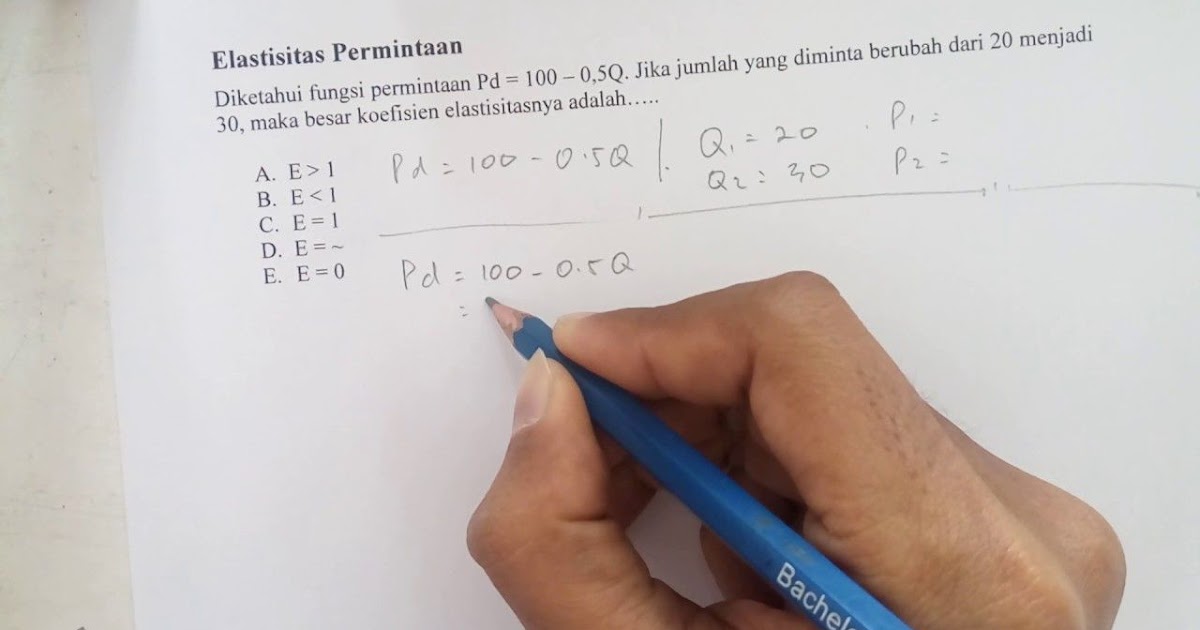 Elastisitas Permintaan
Diketahui fungsi permintaan Pd = 100 – 0,5Q. Jika jumlah yang diminta berubah dari 20 menjadi
30, maka besar koefisien elastisitasnya adalah…..
A. E > 1
B. E < 1
C. E = 1
D. E = ~
E. E = 0
Pd = 100 - 0.5Q
Q1 = 20
Q2 = 30
P1 =
P2 =
Pd = 100 - 0.5Q
=
Bachel